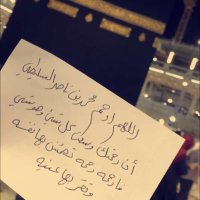 اللهم ارحم محمد بن ناصر السليطي
أن رحمتك وسعت كل شيء وهو شيء
فارحمه رحمة تطمئن بها نفسه
وتقر بها عينيه